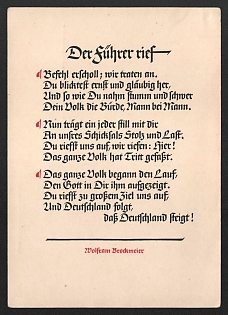 Der Führer rief
Befehl erscholl; wir traten an.
Du blicktest ernst und gläubig her,
Und so wie Du nahm stumm und schwer
Dein Volk die Bürde, Mann bei Mann.
Nun trägt ein jeder still mit dir
An unsres Schicksals Stolz und Last.
Du riefst uns auf, wir riefen: Hier!
Das ganze Volk hat Tritt gefaßt.
Das ganze Volk begann den Lauf,
Den Gott in Dir ihm aufgezeigt.
Du riefst zu großem Ziel uns auf,
Und Deutschland folgt,
daß Deutschland steigt!
Wolfram Brockmeier